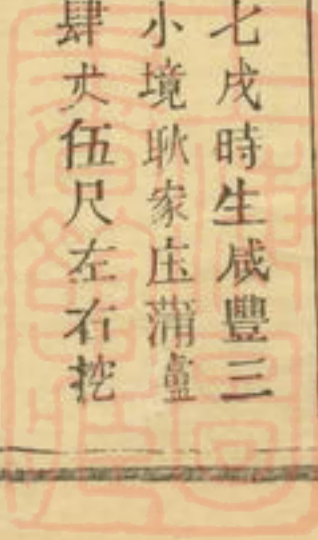 七戌時生咸豐三
小境耿家庄蒲蘆
肆丈伍尺左右挖